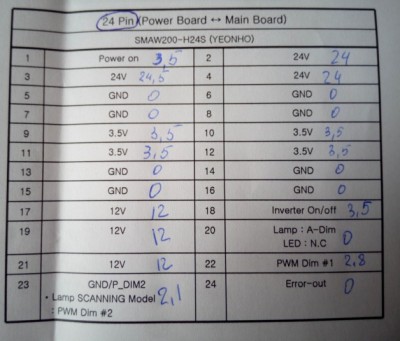 24 Pin (Power Board ↔ Main Board)
SMAW200-H24S (YEONHO)
1 Power on 3,5 2 24V 24
3 24V 24,5 4 24V 24
5 GND 0 6 GND 0
7 GND 0 8 GND 0
9 3.5V 3,5 10 3.5V 3,5
11 3.5V 3,5 12 3.5V 3,5
13 GND 0 14 GND 0
15 GND 0 16 GND 0
17 12V 12 18 Inverter On/off 3,5
19 12V 12 20 Lamp : A-Dim
LED : N.C 0
21 12V 12 22 PWM Dim #1 2,8
23 GND/P_DIM2 24 Error-out 0
• Lamp SCANNING Model 2,1
: PWM Dim #2